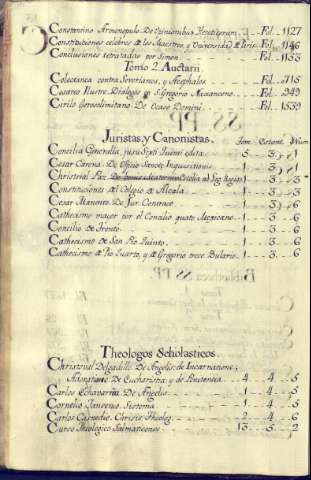 Constantino Armenopulo De Opinionibus Hereticorum Fol. 1127
Constitutiones celebres de los Maestros y Universidad de Paris Fol. 1146
Conclusiones retratadas por Simon Fol. 1153
Tomo 2 Auctarii
Colectanea contra Severianos, y Acephalos Fol. 715
Cesareo Ilustre Dialogos S. Gregorio Nacianceno Fol. 949
Cirilo Gerosolimitano De Ocaso Domini Fol. 1559
Juristas, y Canonistas.
Tom. Estant. Num
Concilia Generalia jusu Sixti Quinti edita 5 3 1
Cesar Carena De Oficio Sancte Inquisitionis 1 3 3
Christoval Paz 1 3 3
Constituciones del Colegio de Alcala 1 3 3
Cesar Manento De Jur. Contract 3 6
Cathecismo mayor por el Concilio quarto Mexicano 1 3 6
Concilio de Trento 1 3 6
Cathecismo de San Pio Quinto 1 3 6
Cathecismo de Pio Quarto, y de Gregorio trece Bulario 1 3 6
Theologos Scholasticos.
Christoval Delgadillo De Angelis, de Incarnatione,
Adoratione De Eucharistia y de Penitentia 4 4 5
Carlos Echavarria De Angelis 1 4 5
Cornelio Jansenio Sistema 1 4 5
Carlos Casnedio Crisis Theolog. 2 4 6
Curso Theologico Salmaticense 13 5 2